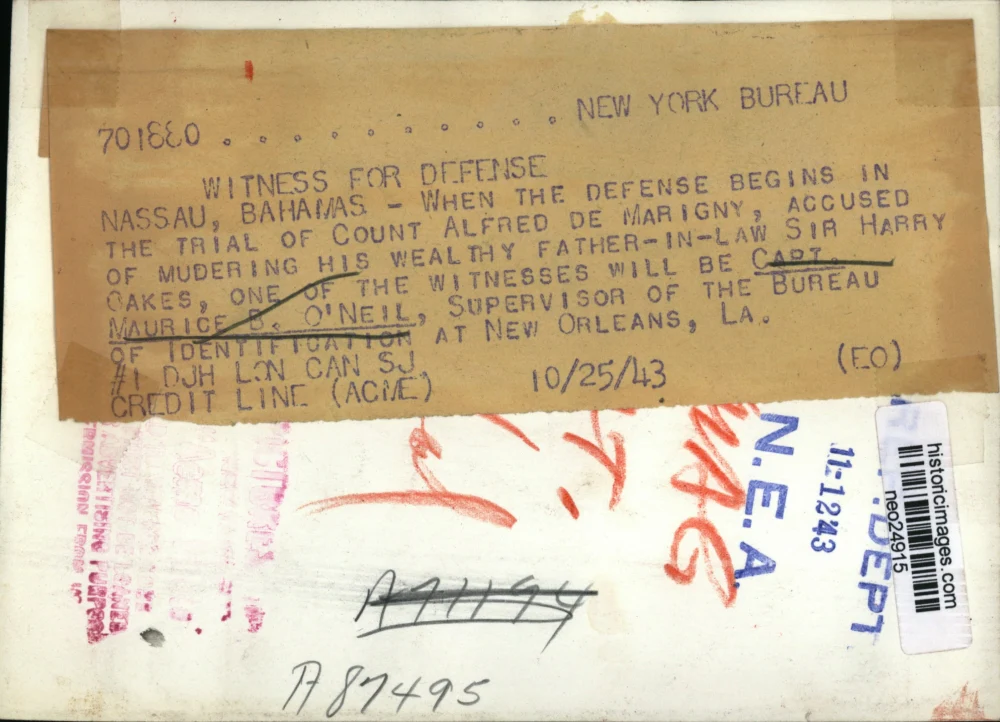 701880 . . . . . . . . . . . . NEW YORK BUREAU
WITNESS FOR DEFENSE
NASSAU, BAHAMAS - WHEN THE DEFENSE BEGINS IN
THE TRIAL OF COUNT ALFRED DE MARIGNY, ACCUSED
OF MUDERING HIS WEALTHY FATHER-IN-LAW SIR HARRY
OAKES, ONE OF THE WITNESSES WILL BE CAPT.
MAURICE B. O'NEIL, SUPERVISOR OF THE BUREAU
OF IDENTIFICATION AT NEW ORLEANS, LA.
#1 DJH LON CAN SJ
CREDIT LINE (ACME) 10/25/43 (EO)
N.E.A.
11-1243
DEPT
historicimages.com
neo24915
A87495